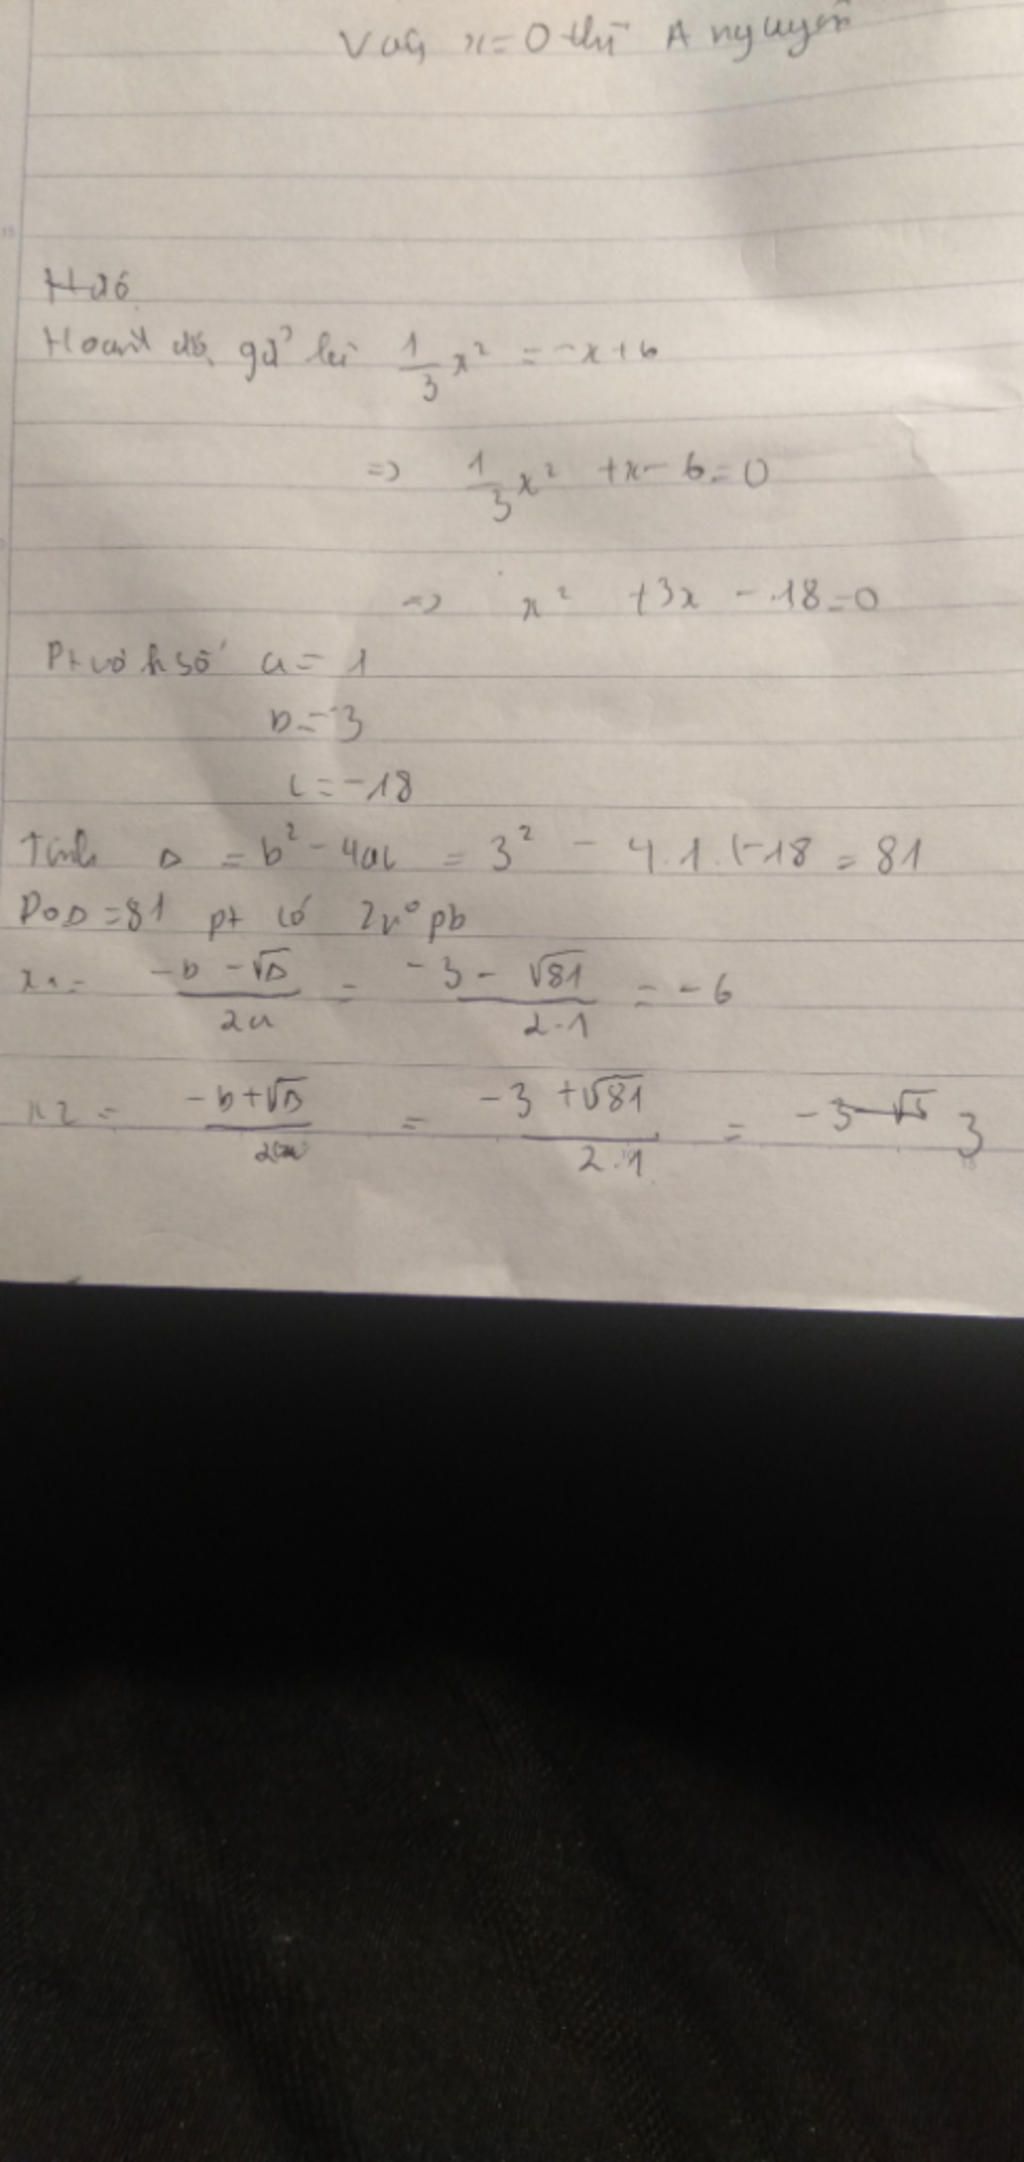 Vậy x=0 thì A nguyên
Hoành độ gđ là 1/3 x² = -x+6
=> 1/3 x² +x- 6=0
=> x² +3x - 18=0
Pt có h số a= 1
b= 3
c=-18
Tính Δ = b² - 4ac = 3² - 4.1.(-18 = 81
Do Δ =81 pt có 2 n° pb
x1= (-b -√Δ)/2a = (-3 - √81)/(2.1) = -6
x2 = (-b+√Δ)/2a = (-3 +√81)/(2.1) = 3